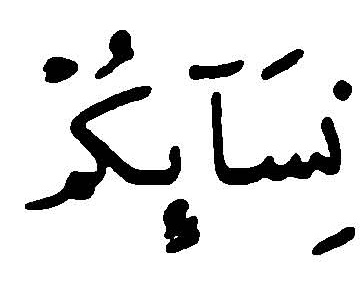 نِسَآئِكُمْ